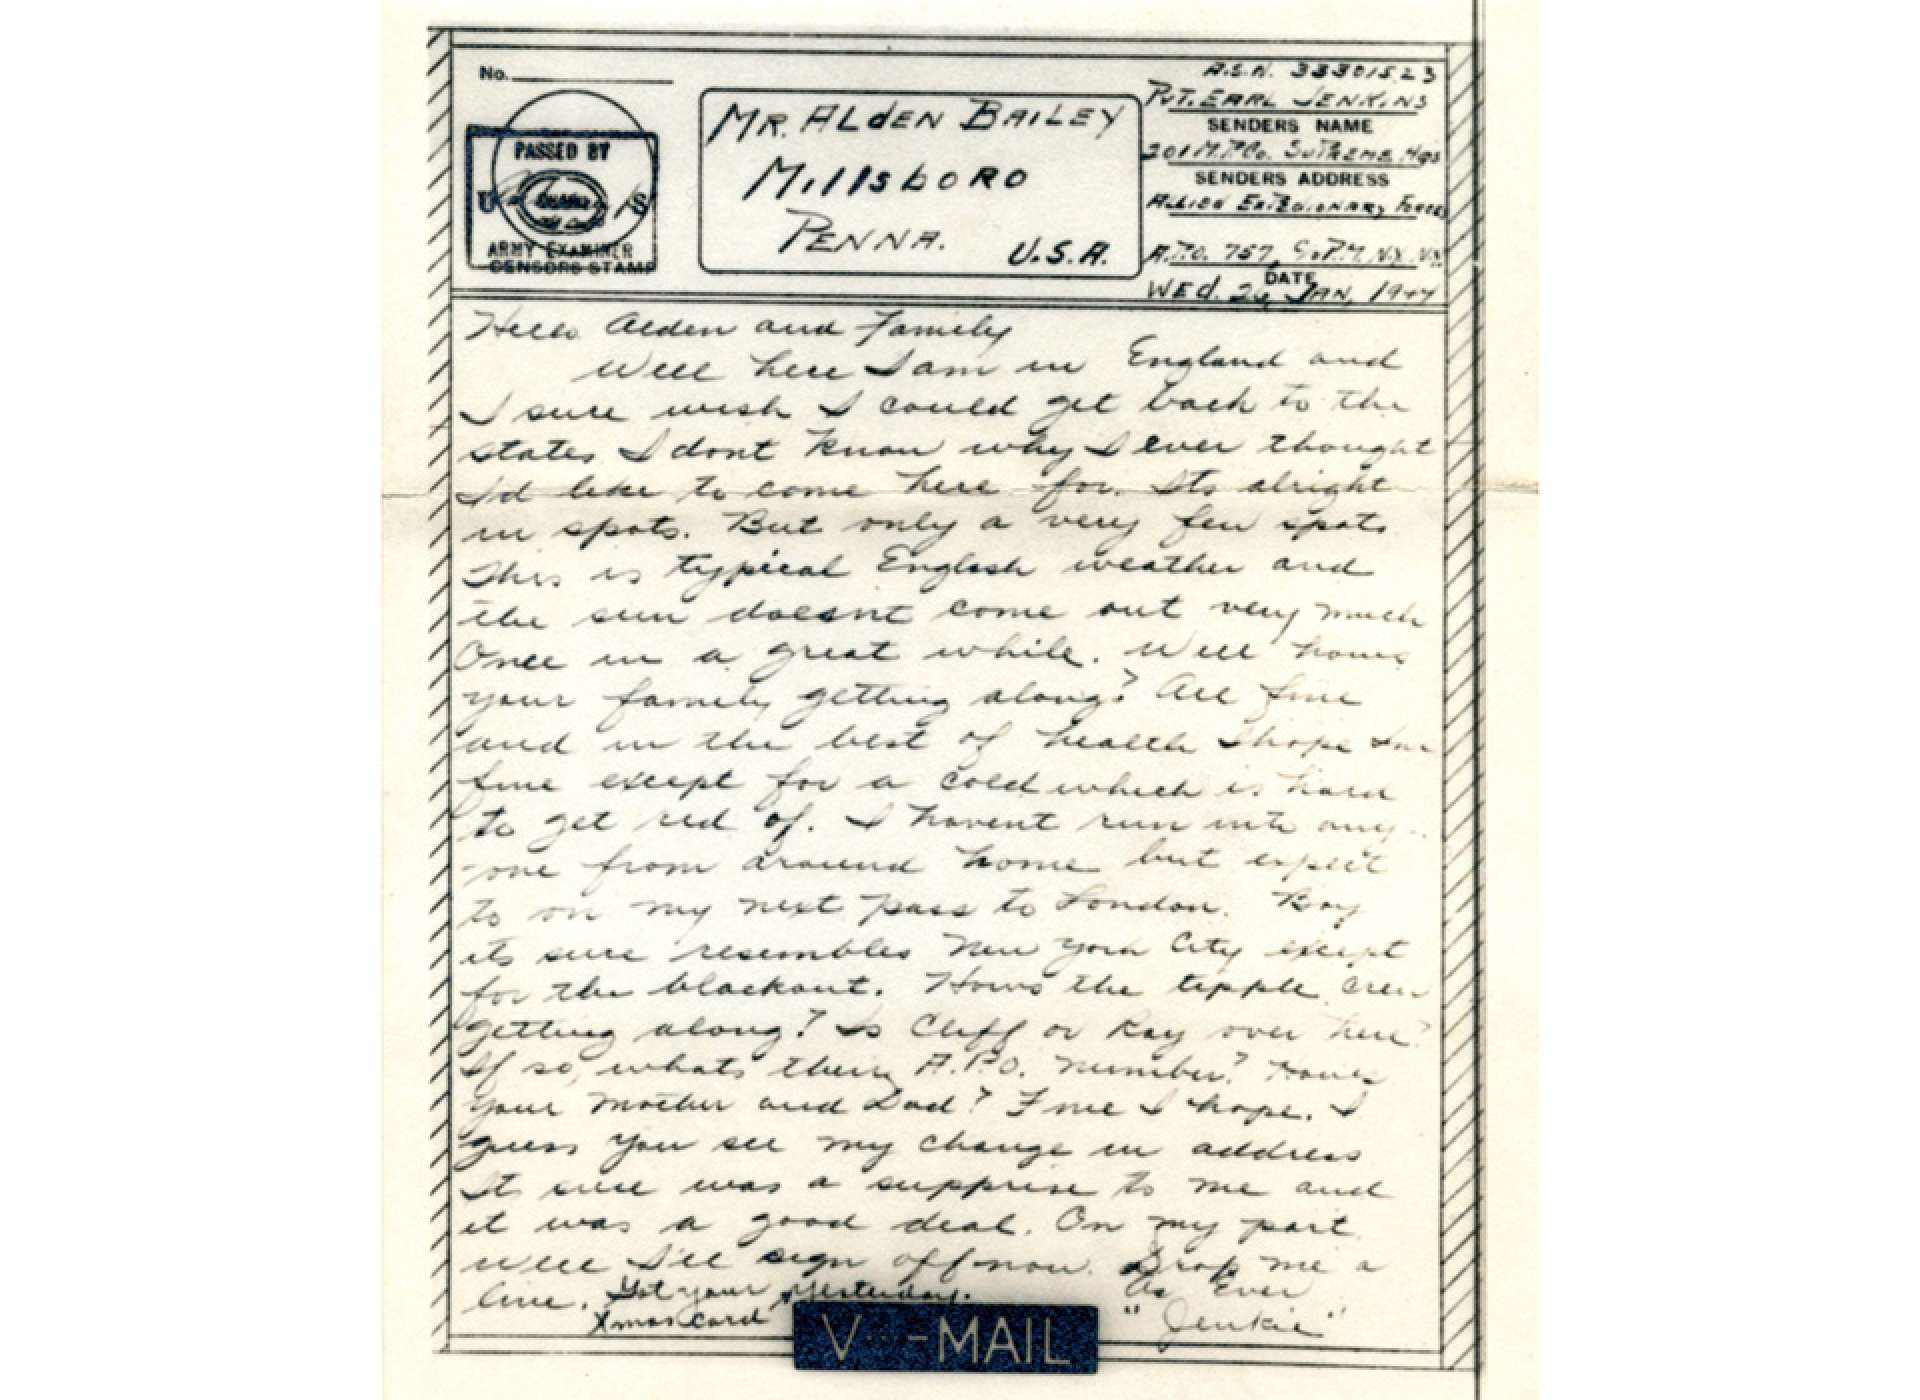 No.
A.S.N. 33301523
PVT. EARL JENKINS
SENDERS NAME
201 M.P. Co. SUPREME HQS
SENDERS ADDRESS
ALLIED EXPEDIONARY FORCES
A.P.O. 757, C/o P.M. N.Y. N.Y.
DATE
WED. 26 JAN, 1944
PASSED BY
U S
ARMY EXAMINER
CENSORS STAMP
MR. ALdEN BAILEY
MillsboRO
PENNA.
U.S.A.
Hello Alden and Family
Well here I am in England and
I sure wish I could get back to the
states I dont know why I ever thought
I'd like to come here for. Its alright
in spots. But only a very few spots
This is typical English weather and
the sun doesnt come out very much
Once in a great while. Well hows
your family getting along? All fine
and in the best of health I hope Im
fine except for a cold which is hard
to get rid of. I havent run into any-
one from around home but expect
to on my next pass to London. Boy
its sure resembles New York City except
for the blackout. Hows the tipple crew
getting along? Is Cliff or Ray over here?
If so, whats their A.P.O. number? Hows
your Mother and Dad? Fine I hope. I
guess you see my change in address
It sure was a supprise to me and
it was a good deal. On my part
Well I'll sign off now. Drop me a
line. Got your yesterday. As Ever
Xmas card "Jenkie"
V···-MAIL